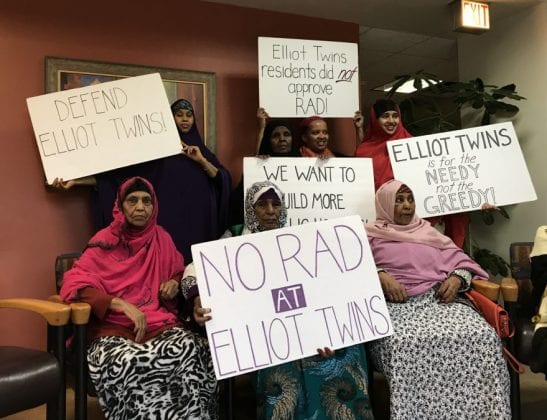 EXIT
Elliot Twins
residents did not
approve
RAD!
DEFEND
ELLIOT TWINS!
ELLIOT TWINS
is for the
NEEDY
not the
GREEDY!
WE WANT TO
BUILD MORE
NO RAD
AT
ELLIOT TWINS